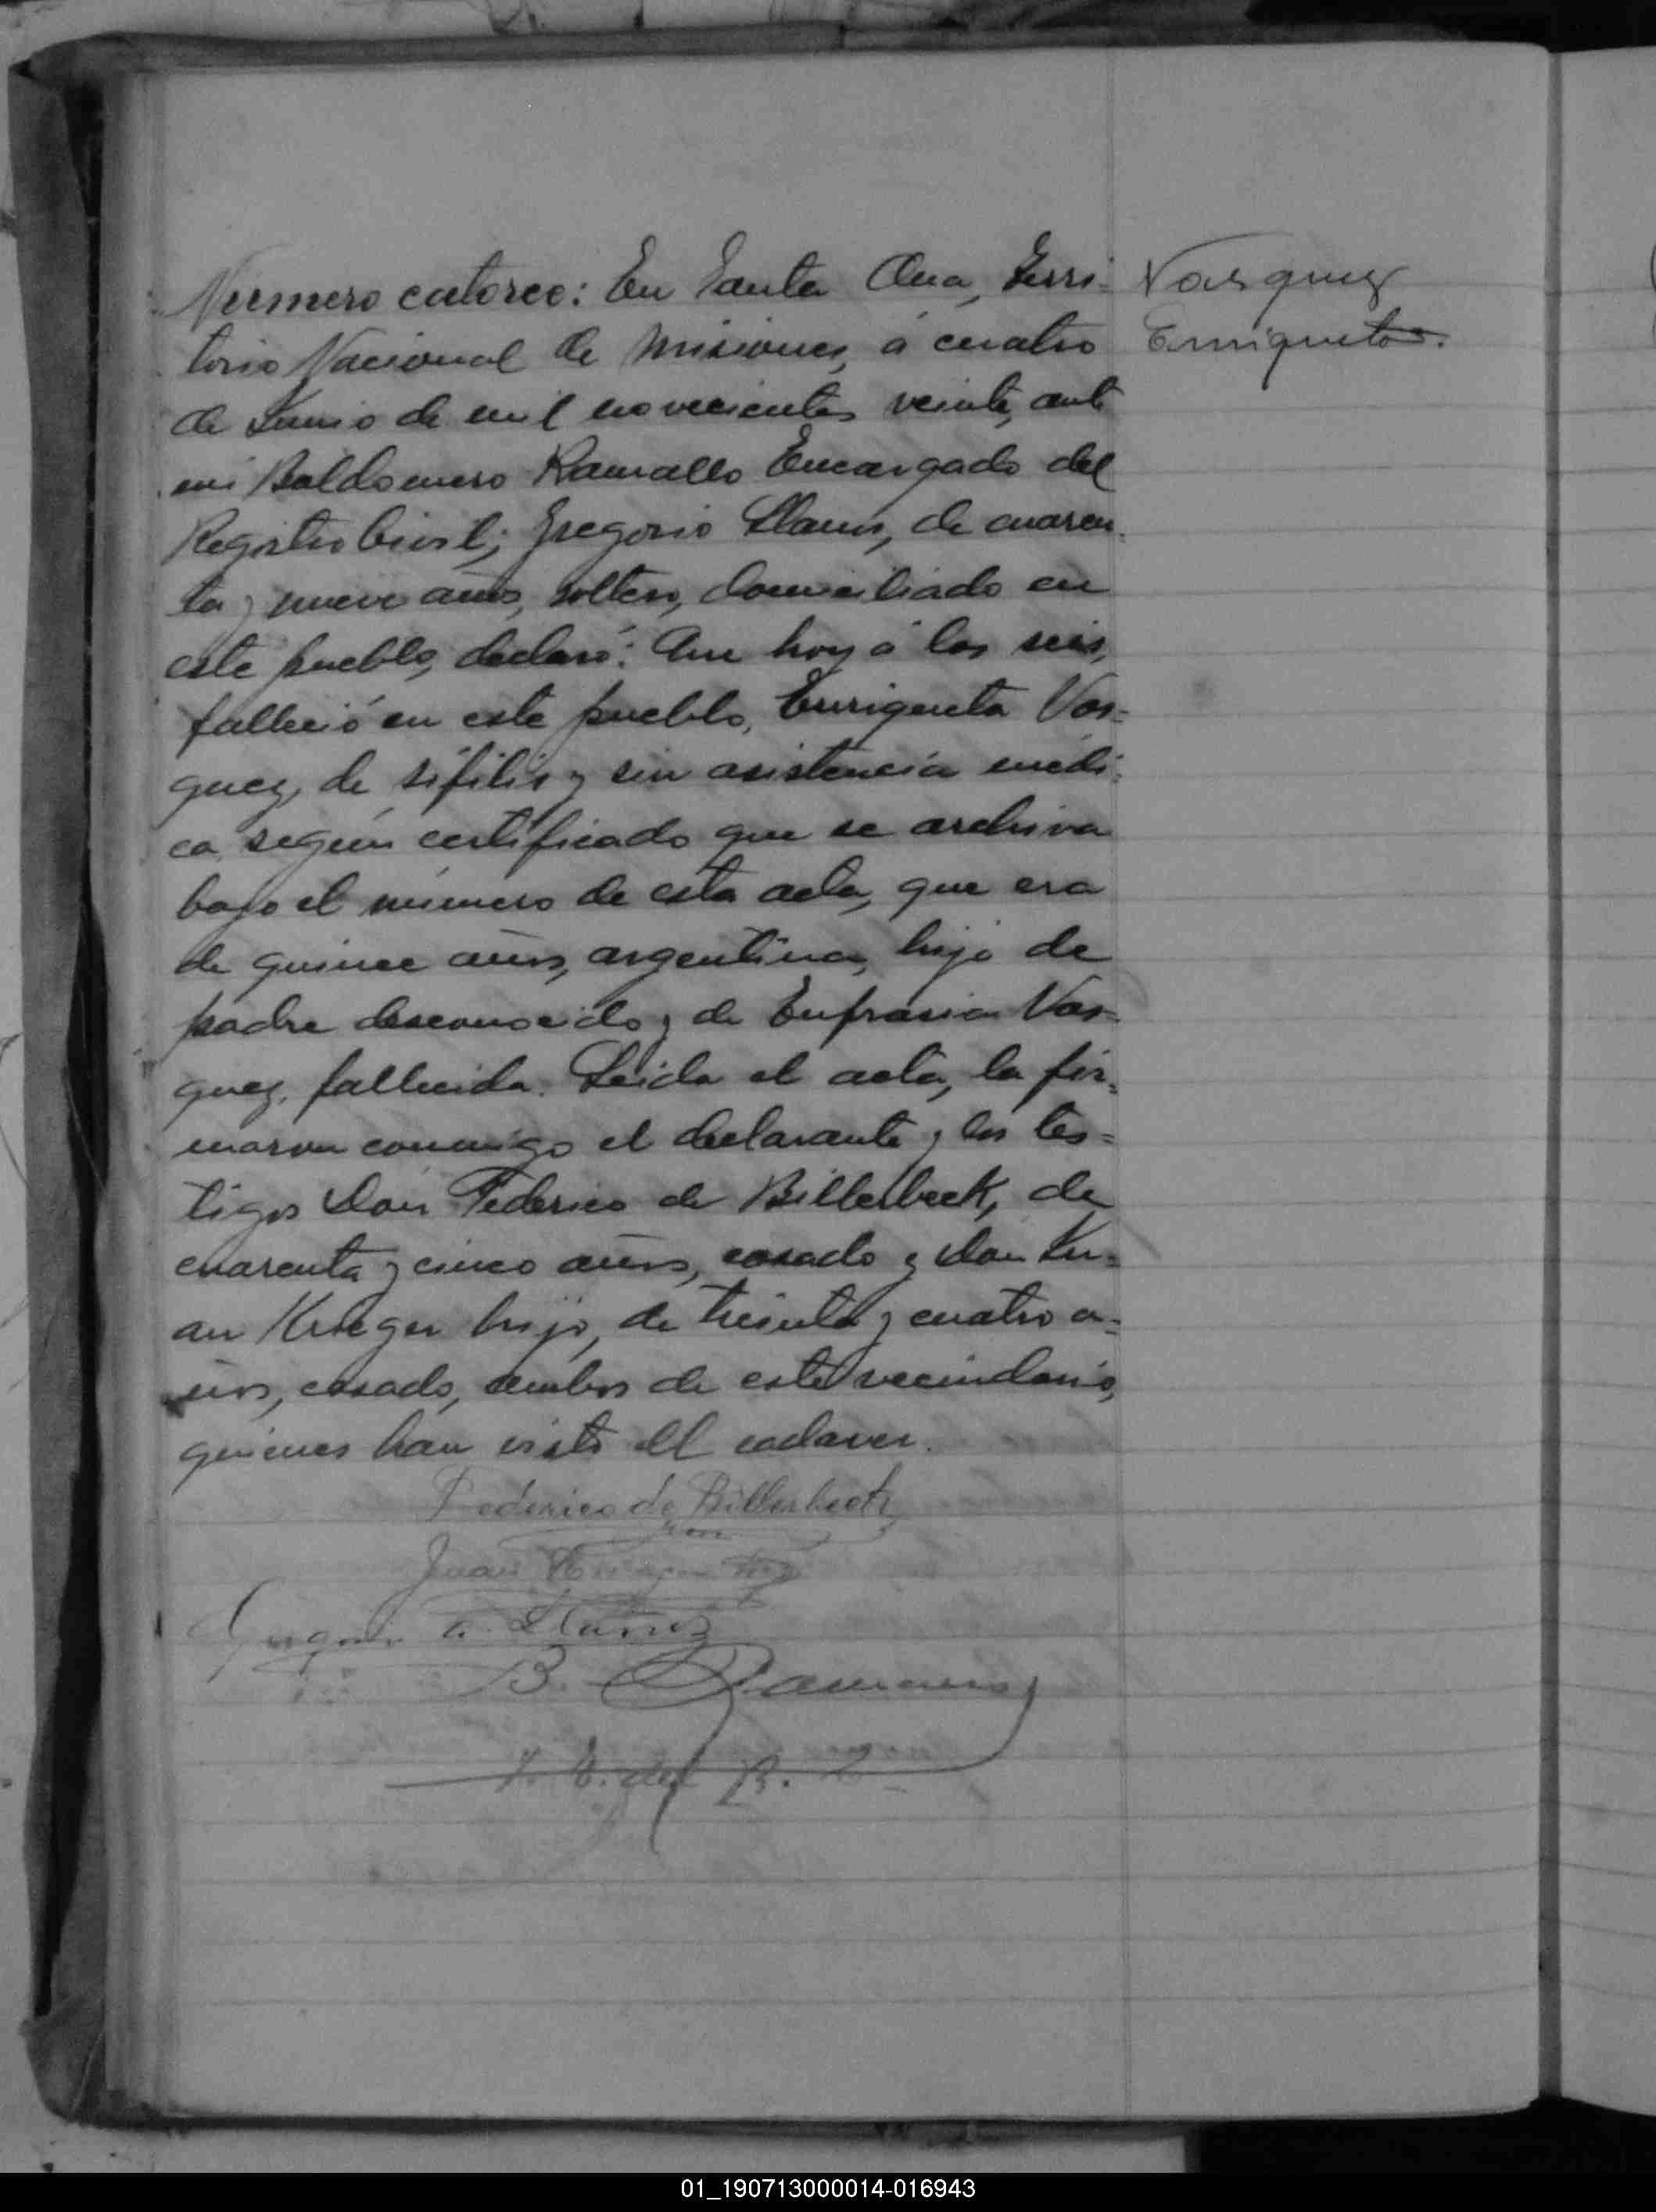 Número catorce: En Santa Ana, Terri-
Vasquez
torio Nacional de Misiones, á cuatro
Enriqueta.
de Junio de mil novecientos veinte, ante
mi Baldomero Ramallo Encargado del
Registro Civil; Gregorio Llanes, de cuaren-
ta y nueve años, soltero, domiciliado en
este pueblo, declaró: Que hoy á las seis,
falleció en este pueblo, Enriqueta Vas-
quez, de sífilis y sin asistencia médi-
ca según certificado que se archiva
bajo el número de esta acta, que era
de quince años, argentina, hija de
padre desconocido y de Eufrasia Vas-
quez, fallecida. Leida el acta, la fir-
maron conmigo el declarante y los tes-
tigos Don Federico de Billerbeck, de
cuarenta y cinco años, casado y Don Ju-
an Krieger hijo, de treinta y cuatro a-
ños, casado, ambos de este vecindario,
quienes han visto el cadaver.
Federico de Billerbeck
Juan Krieger
B.
E. del R.
01_190713000014-016943